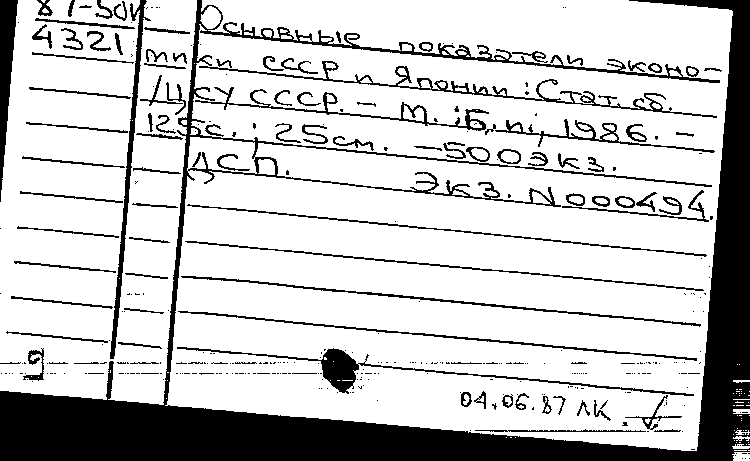 87-50К
4321
Основные показатели эконо-
мики СССР и Японии : Стат. сб.
/ЦСУ СССР. – М. : Б.и., 1986. –
125с. ; 25см. – 500экз.
ДСП. Экз. N000494.
04.06.87 ЛК.